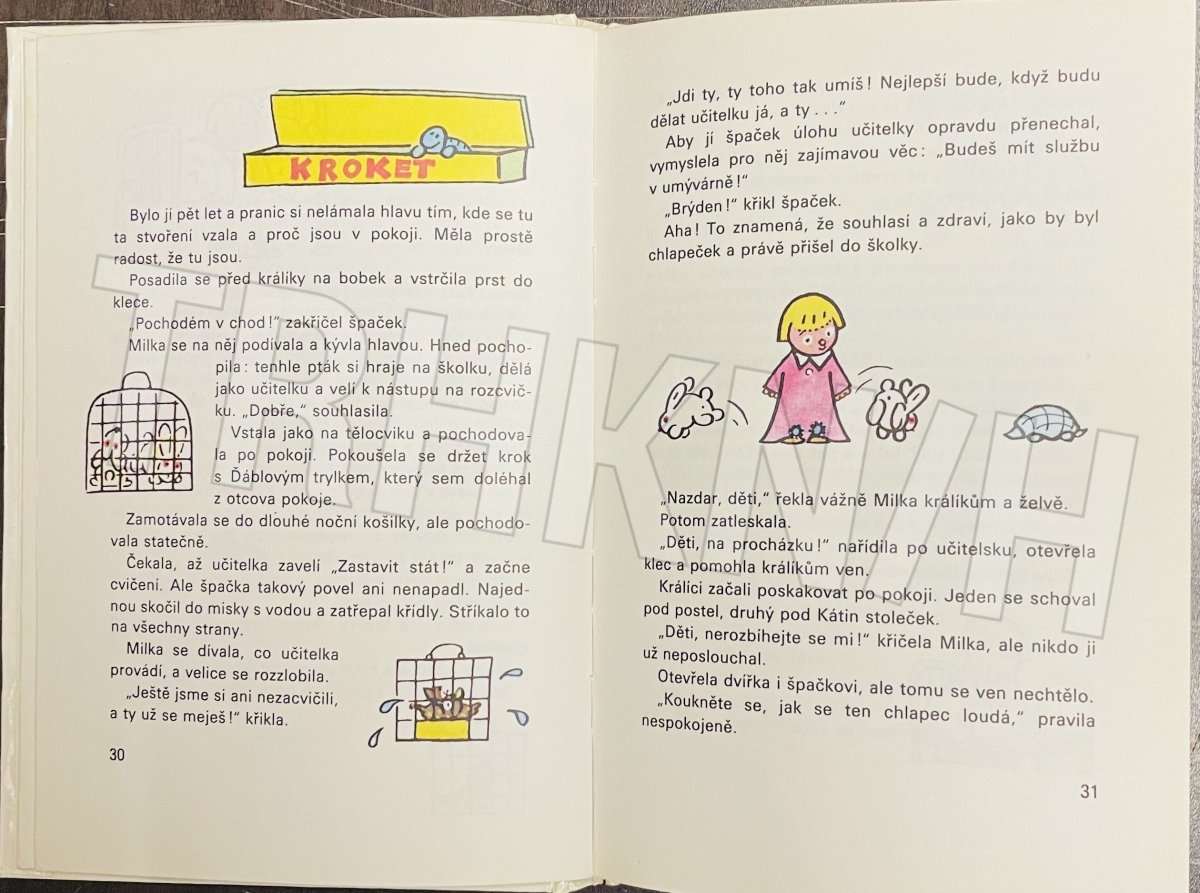 KROKET
Bylo jí pět let a pranic si nelámala hlavu tím, kde se tu
ta stvoření vzala a proč jsou v pokoji. Měla prostě
radost, že tu jsou.
Posadila se před králíky na bobek a vstrčila prst do
klece.
„Pochodém v chod!“ zakřičel špaček.
Milka se na něj podívala a kývla hlavou. Hned pocho-
pila: tenhle pták si hraje na školku, dělá
jako učitelku a velí k nástupu na rozcvič-
ku. „Dobře,“ souhlasila.
Vstala jako na tělocviku a pochodova-
la po pokoji. Pokoušela se držet krok
s Ďáblovým trylkem, který sem doléhal
z otcova pokoje.
Zamotávala se do dlouhé noční košilky, ale pochodo-
vala statečně.
Čekala, až učitelka zavelí „Zastavit stát!“ a začne
cvičení. Ale špačka takový povel ani nenapadl. Najed-
nou skočil do misky s vodou a zatřepal křídly. Stříkalo to
na všechny strany.
Milka se dívala, co učitelka
provádí, a velice se rozzlobila.
„Ještě jsme si ani nezacvičili,
a ty už se meješ!“ křikla.
30
„Jdi ty, ty toho tak umíš! Nejlepší bude, když budu
dělat učitelku já, a ty . . .“
Aby jí špaček úlohu učitelky opravdu přenechal,
vymyslela pro něj zajímavou věc: „Budeš mít službu
v umývárně!“
„Brýden!“ křikl špaček.
Aha! To znamená, že souhlasí a zdraví, jako by byl
chlapeček a právě přišel do školky.
„Nazdar, děti,“ řekla vážně Milka králíkům a želvě.
Potom zatleskala.
„Děti, na procházku!“ nařídila po učitelsku, otevřela
klec a pomohla králíkům ven.
Králíci začali poskakovat po pokoji. Jeden se schoval
pod postel, druhý pod Kátin stoleček.
„Děti, nerozbíhejte se mi!“ křičela Milka, ale nikdo ji
už neposlouchal.
Otevřela dvířka i špačkovi, ale tomu se ven nechtělo.
„Koukněte se, jak se ten chlapec loudá,“ pravila
nespokojeně.
31
TRHKNIH